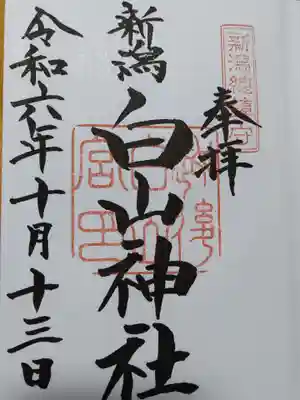 新潟總鎮守
奉拝
新潟
白山神社
令和六年十月十三日